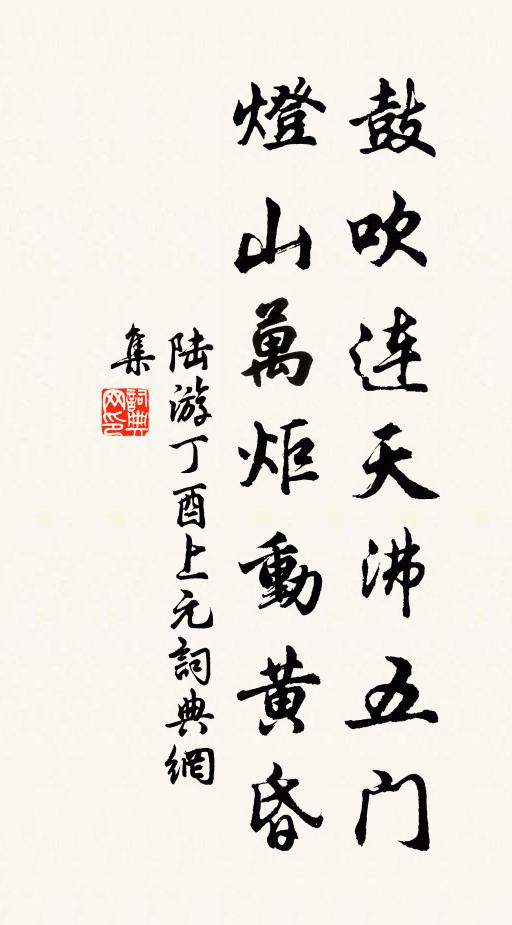 鼓吹连天沸五门
燈山萬炬動黄昏
陆游丁酉上元詞典網
集
詞典网印